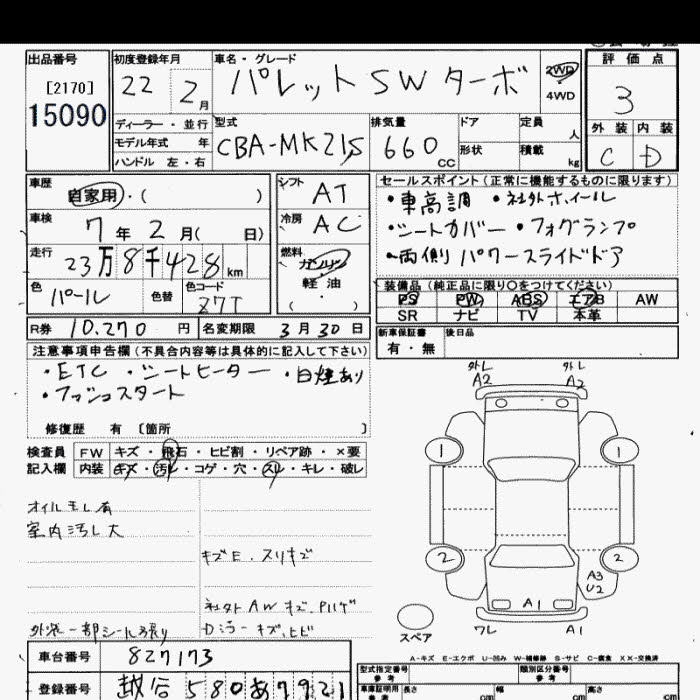 出品番号
[2170]
15090
初度登録年月
22 2月
車名・グレード
パレットSW ターボ
2WD
4WD
評価点
3
外装 内装
C D
ディーラー・並行
モデル年式 年
ハンドル 左・右
型式
CBA-MK21S
排気量
660 CC
ドア
形状
定員 人
積載 kg
車歴
自家用・( )
車検
7年 2月( 日)
走行
23万8千428km
色
パール
色替
色コード
Z7T
シフト
AT
冷房
AC
燃料
ガソリン
軽油
( )
セールスポイント(正常に機能するものに限ります)
・車高調 ・社外ホイール
・シートカバー ・フォグランプ
・両側パワースライドドア
装備品(純正品に限り〇をつけてください)
PS PW ABS エアB AW
SR ナビ TV 本革
R券 10,270円
名変期限 3月30日
新車保証書
有・無
後日品
注意事項申告欄(不具合内容等は具体的に記入して下さい)
・ETC ・シートヒーター ・白煙あり
・プッシュスタート
修復歴 有 〔箇所 〕
検査員
記入欄
FW キズ・飛石・ヒビ割・リペア跡・×要
内装 キズ・汚れ・コゲ・穴・スレ・キレ・破レ
オイルモレ有
室内汚レ大
キズE・スリキズ
社外AWキズ、Pハゲ
外装一部シール張り
Dミラーキズ、ヒビ
外レ A2
外レ A2
1
1
2
2
A3
U2
A1
スペア
ワレ
A1
A-キズ E-エクボ U-凹み W-補修跡 S-サビ C-腐食 XX-交換済
車台番号
827173
登録番号
越谷580あ7921
型式指定番号
参考
類別区分番号
参考
車庫証明用
参考
長さ cm
幅 cm
高さ cm